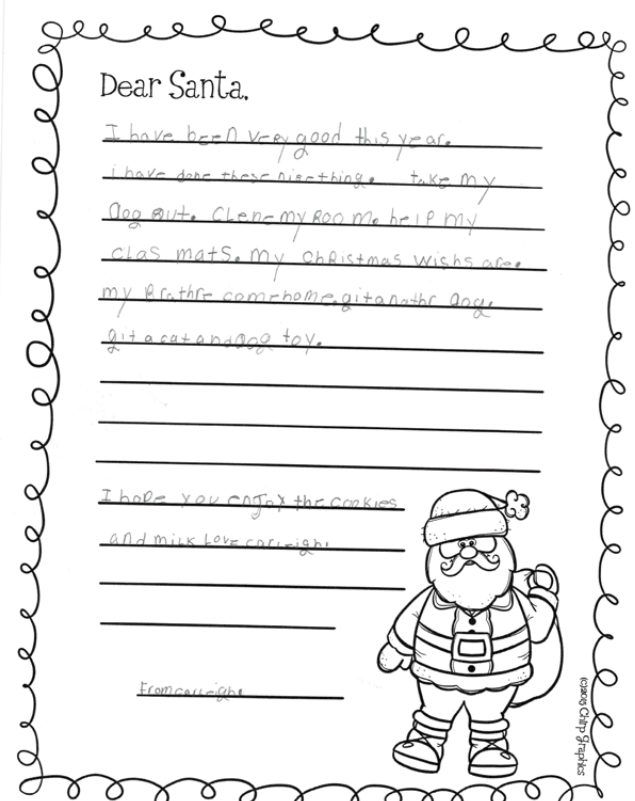 Dear Santa,
I have been very good this year.
i have done these nice thing. take my
dog out. Clene my Room. help my
clas mats. my christmas wishs are.
my Brathre come home. git anathr dog.
git a cat and dog toy.
I hope you enjoy the cookies
and milk Love carleigh
From carleigh
(c)2015 Chirp Graphics